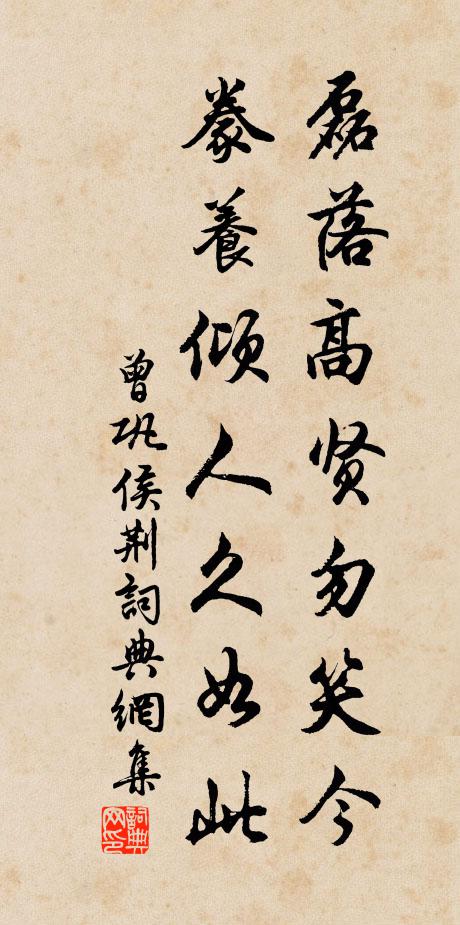 磊落高贤勿笑今
豢養傾人久如此
曾巩侯荆詞典網集
詞典网印